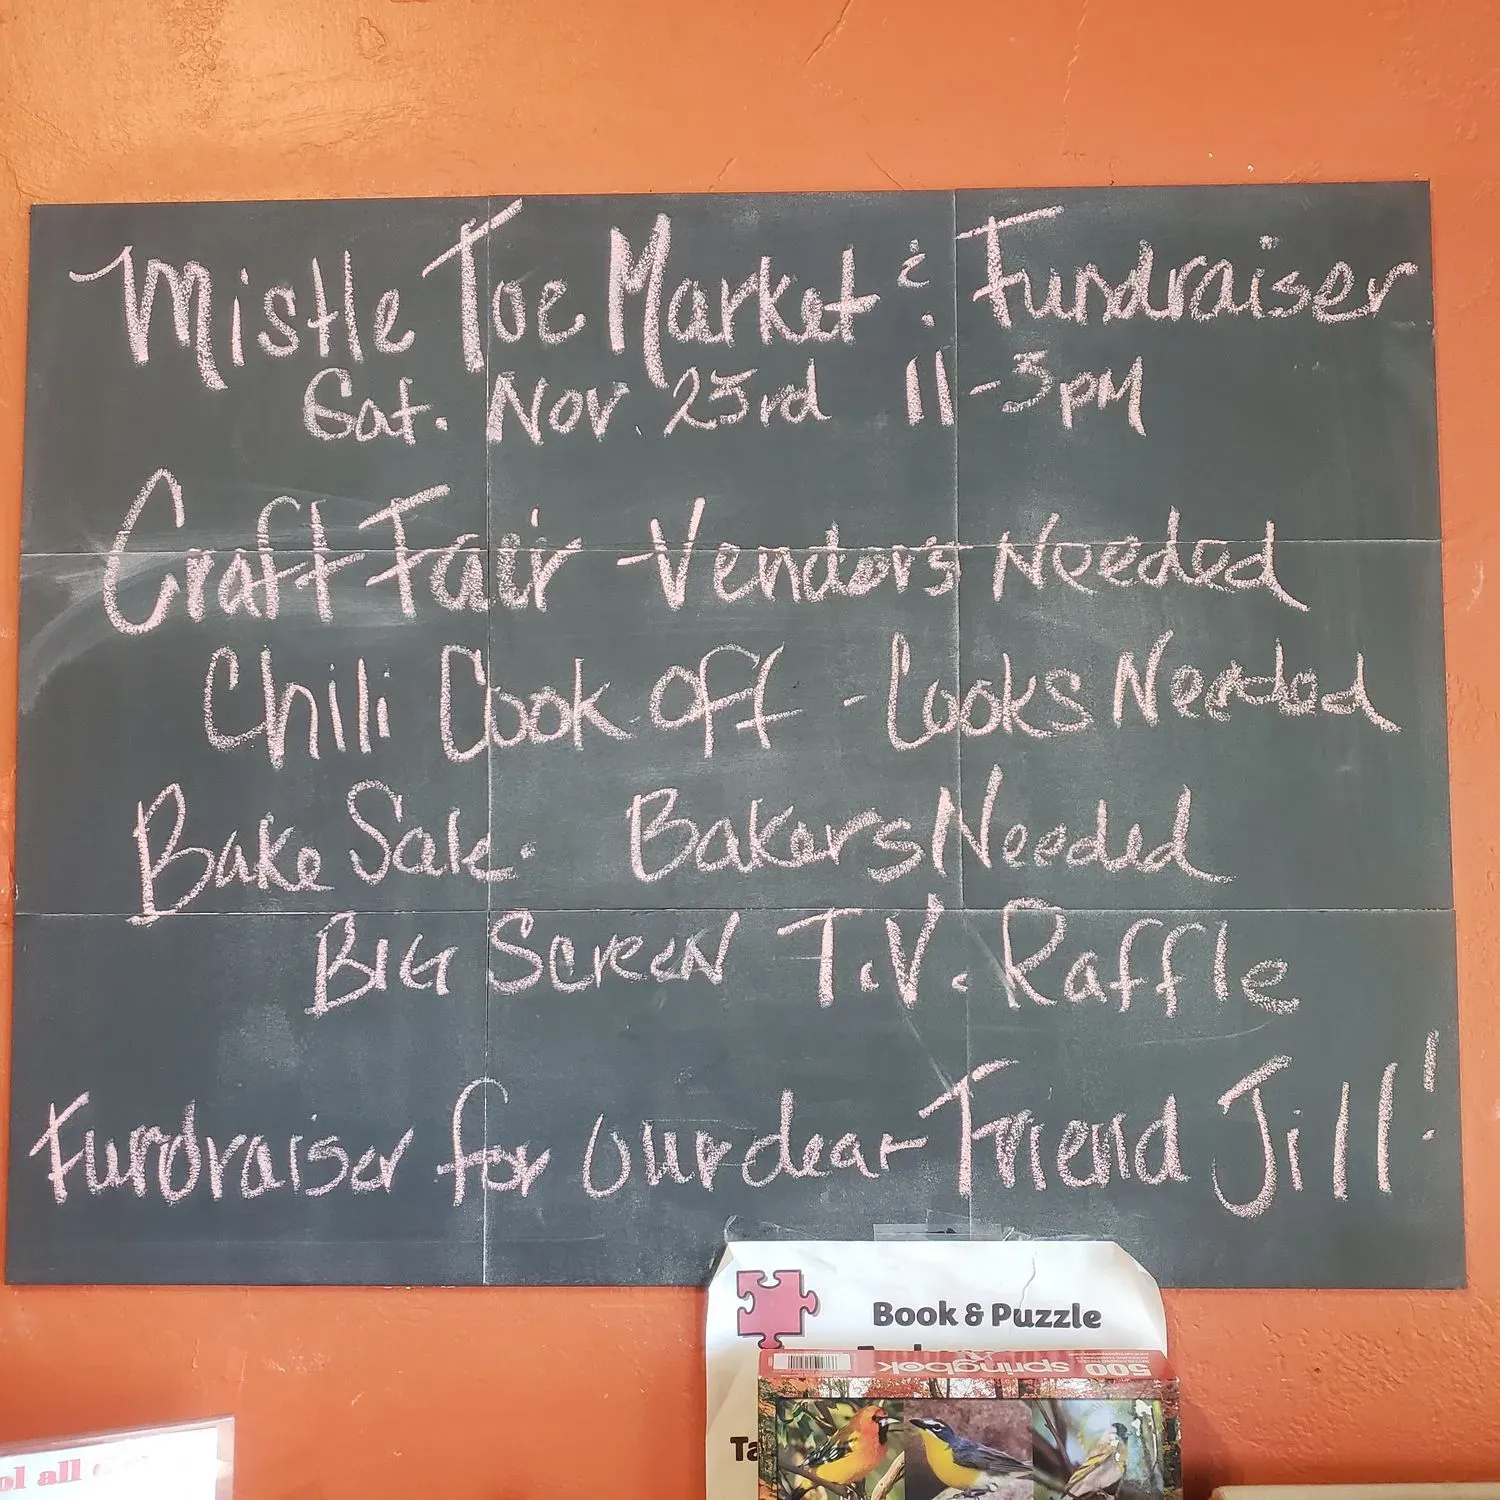 Mistle Toe Market & Fundraiser
Sat. Nov 23rd 11-3pm
Craft Fair - Vendors Needed
Chili Cook off - Cooks Needed
Bake Sale. Bakers Needed
BIG SCREEN T.V. Raffle
Fundraiser for our dear Friend Jill!
Book & Puzzle
springbok 500
Ta
ol all